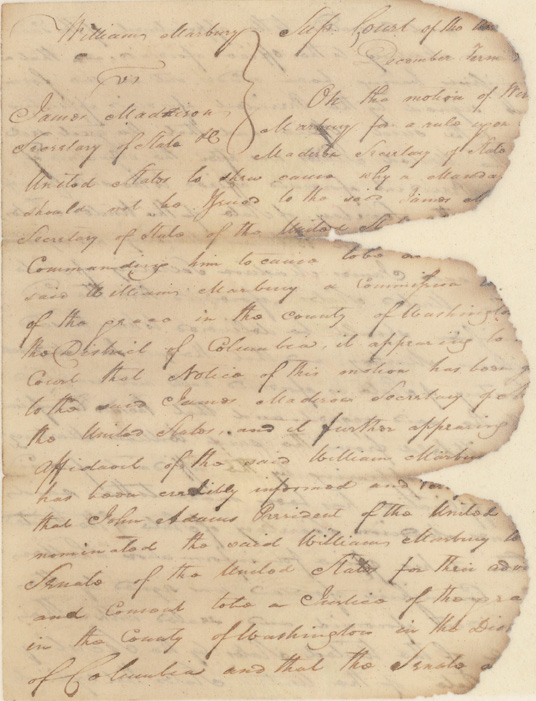 William Marbury } Sup. Court of the
vs December Term
On the motion of
James Maddison Marbury for a rule upon
Secretary of State &c Madison Secretary of State
United States to shew cause why a Manda
should not be Issued to the said James
Secretary of State of the United St
Commanding him to cause to be
said William Marbury a Commission
of the peace in the county of Washington
the District of Columbia, it appearing to
Court that Notice of this motion has been
to the said James Madison Secretary of
the United States, and it further appearing
affidavit of the said William Marbu
has been credibly informed and
that John Adams President of the United
nominated the said William Marbury to
Senate of the United States for their adv
and Consent to be a Justice of the pea
in the County of Washington in the Dis
of Columbia and that the Senate